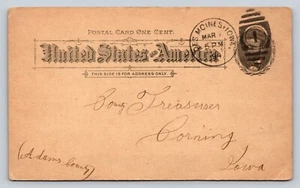 POSTAL CARD ONE CENT.
United States of America
THIS SIDE IS FOR ADDRESS ONLY.
MOINES IOWA
MAR
5 PM
Treasurer
Corning
(Adams County)
Iowa